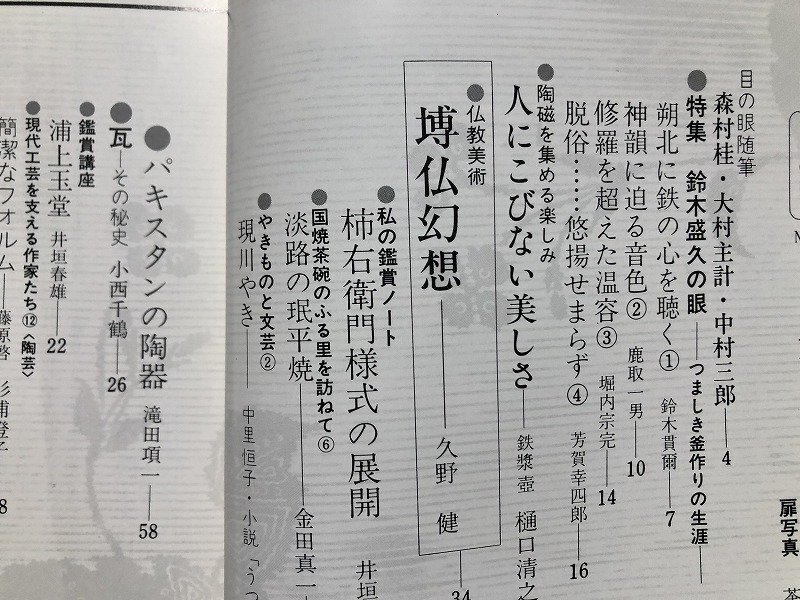 扉写真
茶
目の眼随筆
森村桂・大村主計・中村三郎――4
●特集 鈴木盛久の眼――つましき釜作りの生涯――
朔北に鉄の心を聴く① 鈴木貫爾――7
神韻に迫る音色② 鹿取一男――10
修羅を超えた温容③ 堀内宗完――14
脱俗……悠揚せまらず④ 芳賀幸四郎――16
●陶磁を集める楽しみ
人にこびない美しさ――鉄漿壺 樋口清之
●仏教美術
博仏幻想――久野 健――34
●私の鑑賞ノート
柿右衛門様式の展開 井垣
●国焼茶碗のふる里を訪ねて⑥
淡路の珉平焼――金田真一
●やきものと文芸②
現川やき――中里恒子・小説「うつ
●パキスタンの陶器 滝田項一――58
●瓦――その秘史 小西千鶴――26
●鑑賞講座
浦上玉堂 井垣春雄――22
●現代工芸を支える作家たち⑫〈陶芸〉
簡潔なフォルム――藤原啓 杉浦澄子
8